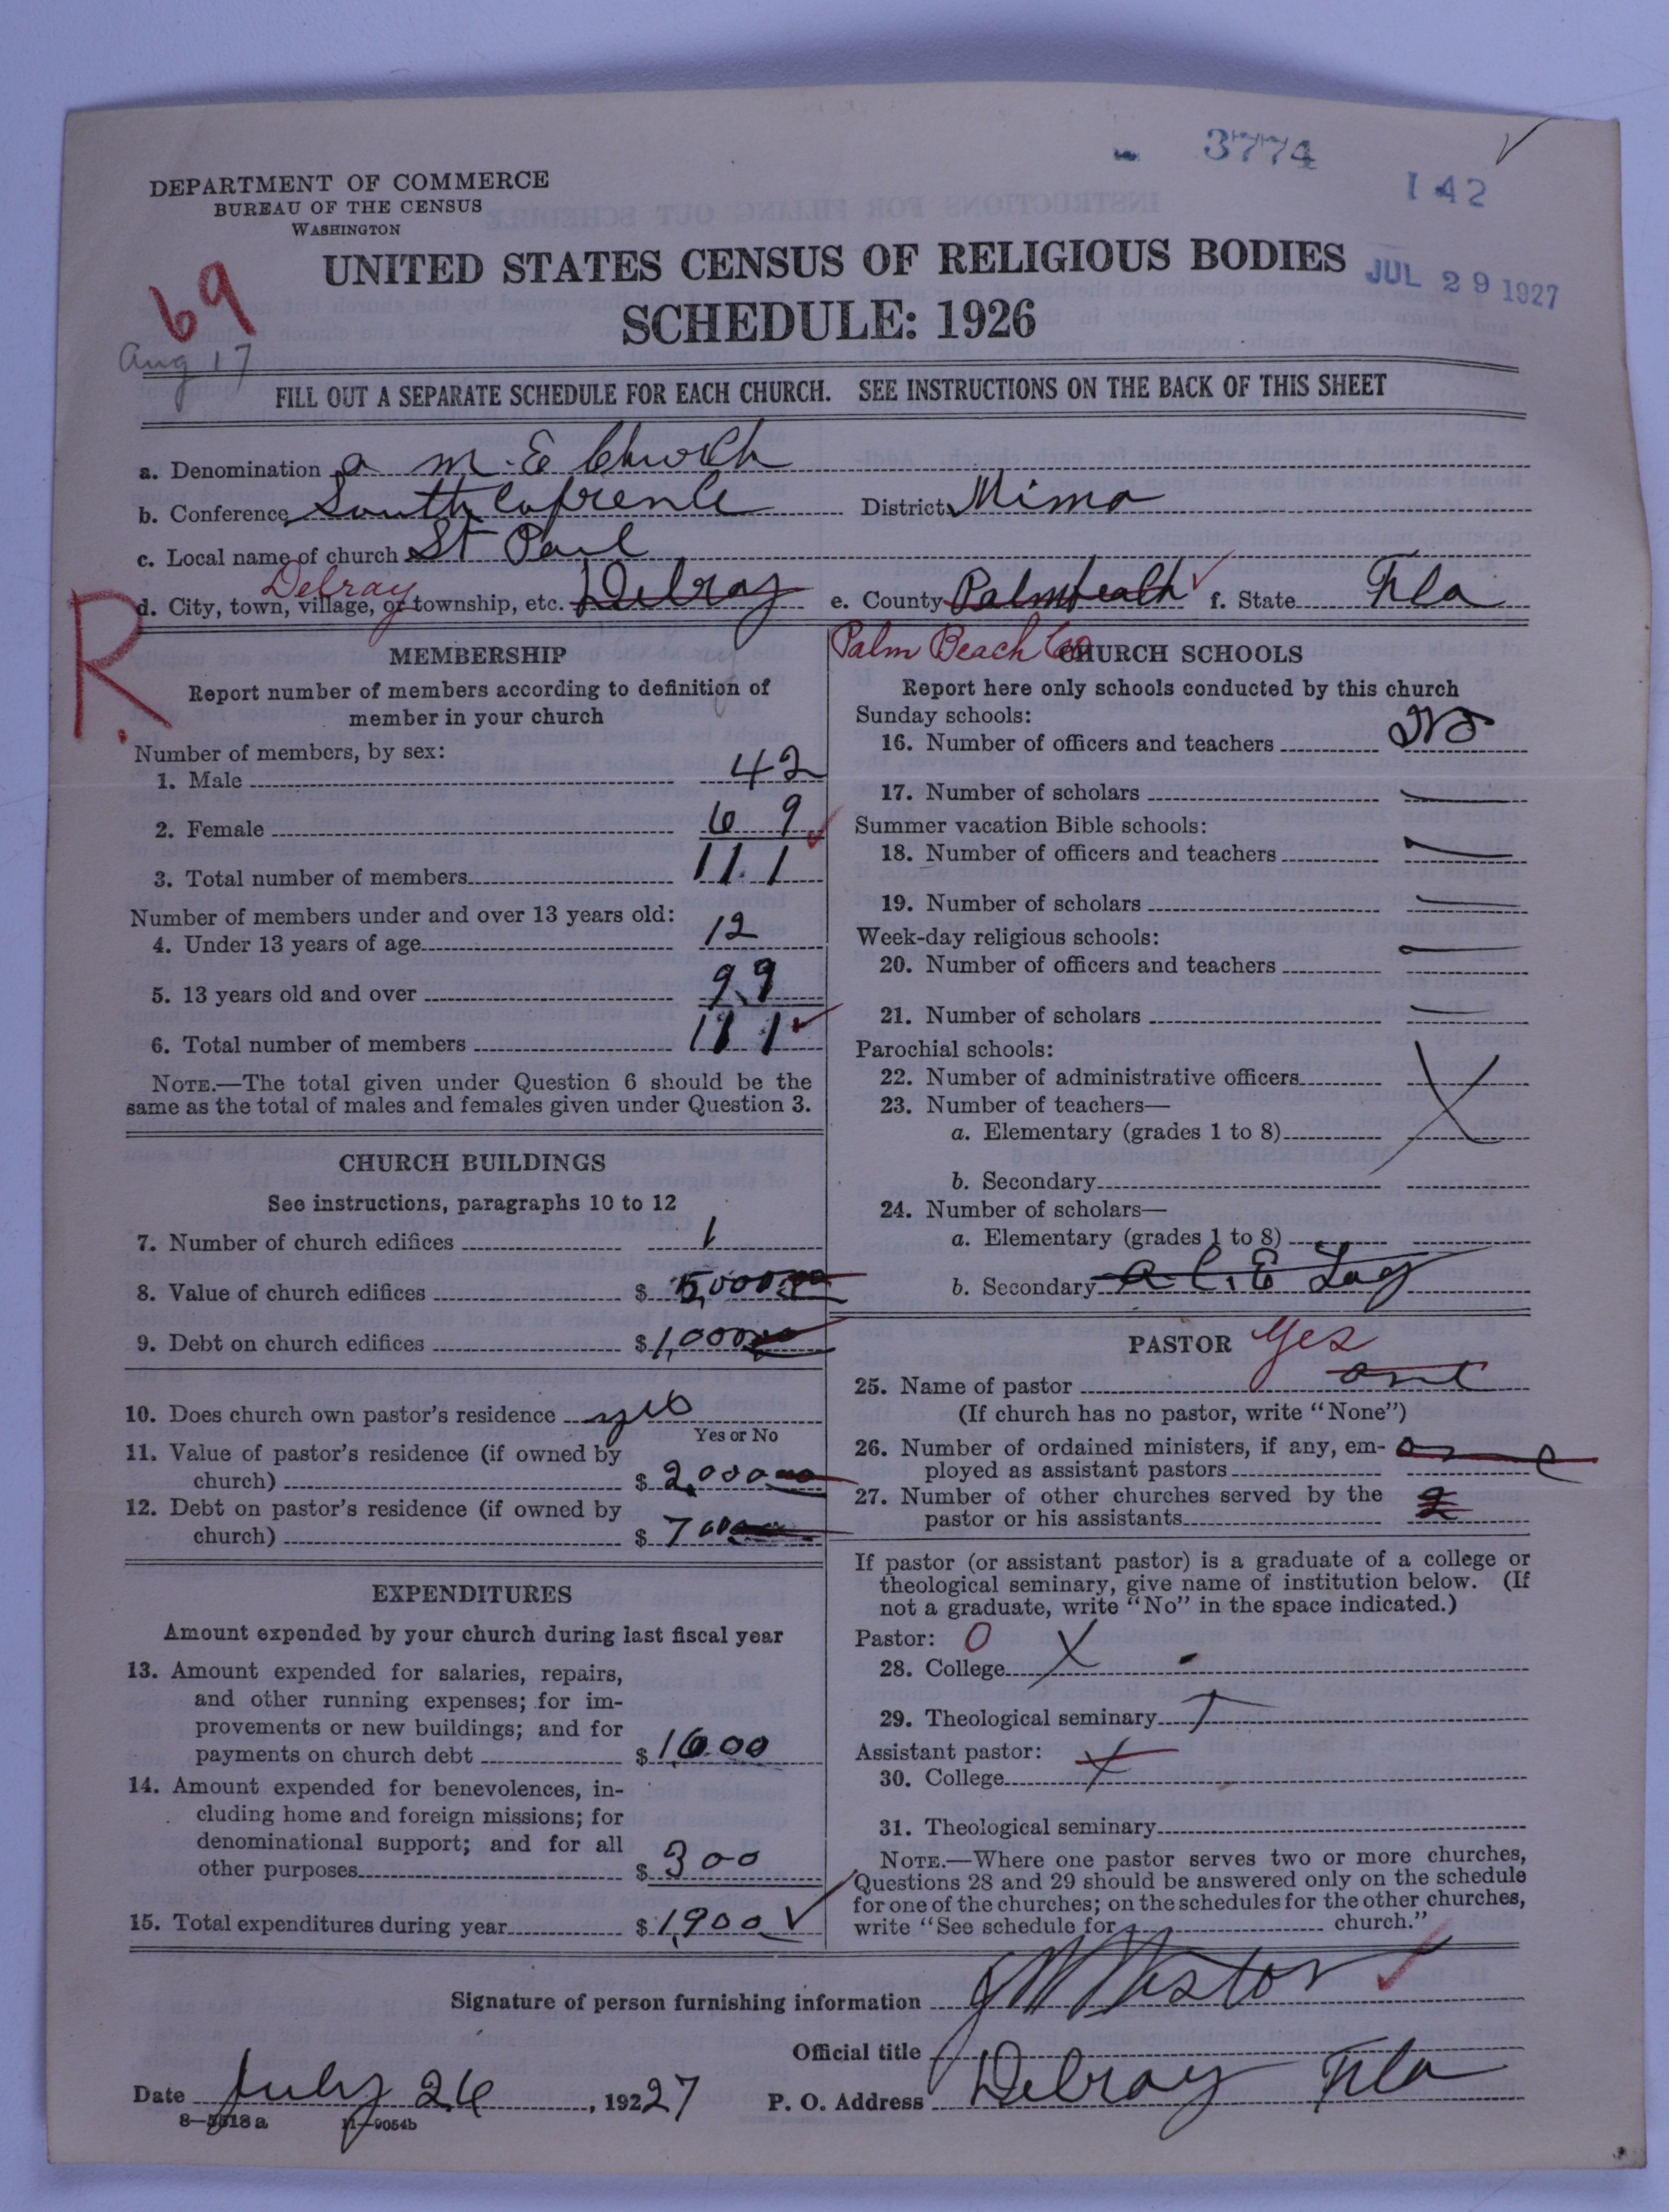 3774
142
DEPARTMENT OF COMMERCE
BUREAU OF THE CENSUS
WASHINGTON
UNITED STATES CENSUS OF RELIGIOUS BODIES
JUL 29 1927
SCHEDULE: 1926
69
Aug 17
FILL OUT A SEPARATE SCHEDULE FOR EACH CHURCH. SEE INSTRUCTIONS ON THE BACK OF THIS SHEET
a. Denomination a M. E Church
b. Conference South District
c. Local name of church St Paul
Delray
d. City, town, village, or township, etc. Delray e. County Palmbeach f. State Fla
R.
Palm Beach Co
MEMBERSHIP
Report number of members according to definition of
member in your church
Number of members, by sex:
1. Male 42
2. Female 69
3. Total number of members 111
Number of members under and over 13 years old:
4. Under 13 years of age 12
5. 13 years old and over 99
6. Total number of members 111
NOTE.—The total given under Question 6 should be the
same as the total of males and females given under Question 3.
CHURCH BUILDINGS
See instructions, paragraphs 10 to 12
7. Number of church edifices 1
8. Value of church edifices $ 5,000
9. Debt on church edifices $ 1,000
10. Does church own pastor's residence yes
Yes or No
11. Value of pastor's residence (if owned by
church) $ 2,000
12. Debt on pastor's residence (if owned by
church) $ 700
EXPENDITURES
Amount expended by your church during last fiscal year
13. Amount expended for salaries, repairs,
and other running expenses; for im-
provements or new buildings; and for
payments on church debt $ 1600
14. Amount expended for benevolences, in-
cluding home and foreign missions; for
denominational support; and for all
other purposes $ 300
15. Total expenditures during year $ 1,900
CHURCH SCHOOLS
Report here only schools conducted by this church
Sunday schools:
16. Number of officers and teachers
17. Number of scholars
Summer vacation Bible schools:
18. Number of officers and teachers
19. Number of scholars
Week-day religious schools:
20. Number of officers and teachers
21. Number of scholars
Parochial schools:
22. Number of administrative officers
23. Number of teachers—
a. Elementary (grades 1 to 8)
b. Secondary
24. Number of scholars—
a. Elementary (grades 1 to 8)
b. Secondary a. C. E Lag
PASTOR Yes
25. Name of pastor one
(If church has no pastor, write "None")
26. Number of ordained ministers, if any, em-
ployed as assistant pastors one
27. Number of other churches served by the
pastor or his assistants 2
If pastor (or assistant pastor) is a graduate of a college or
theological seminary, give name of institution below. (If
not a graduate, write "No" in the space indicated.)
Pastor: 0
28. College X
29. Theological seminary
Assistant pastor:
30. College X
31. Theological seminary
NOTE.—Where one pastor serves two or more churches,
Questions 28 and 29 should be answered only on the schedule
for one of the churches; on the schedules for the other churches,
write "See schedule for church."
Signature of person furnishing information
Official title
Date July 26, 1922 27 P. O. Address Delray Fla
8—5518a 11—9054b